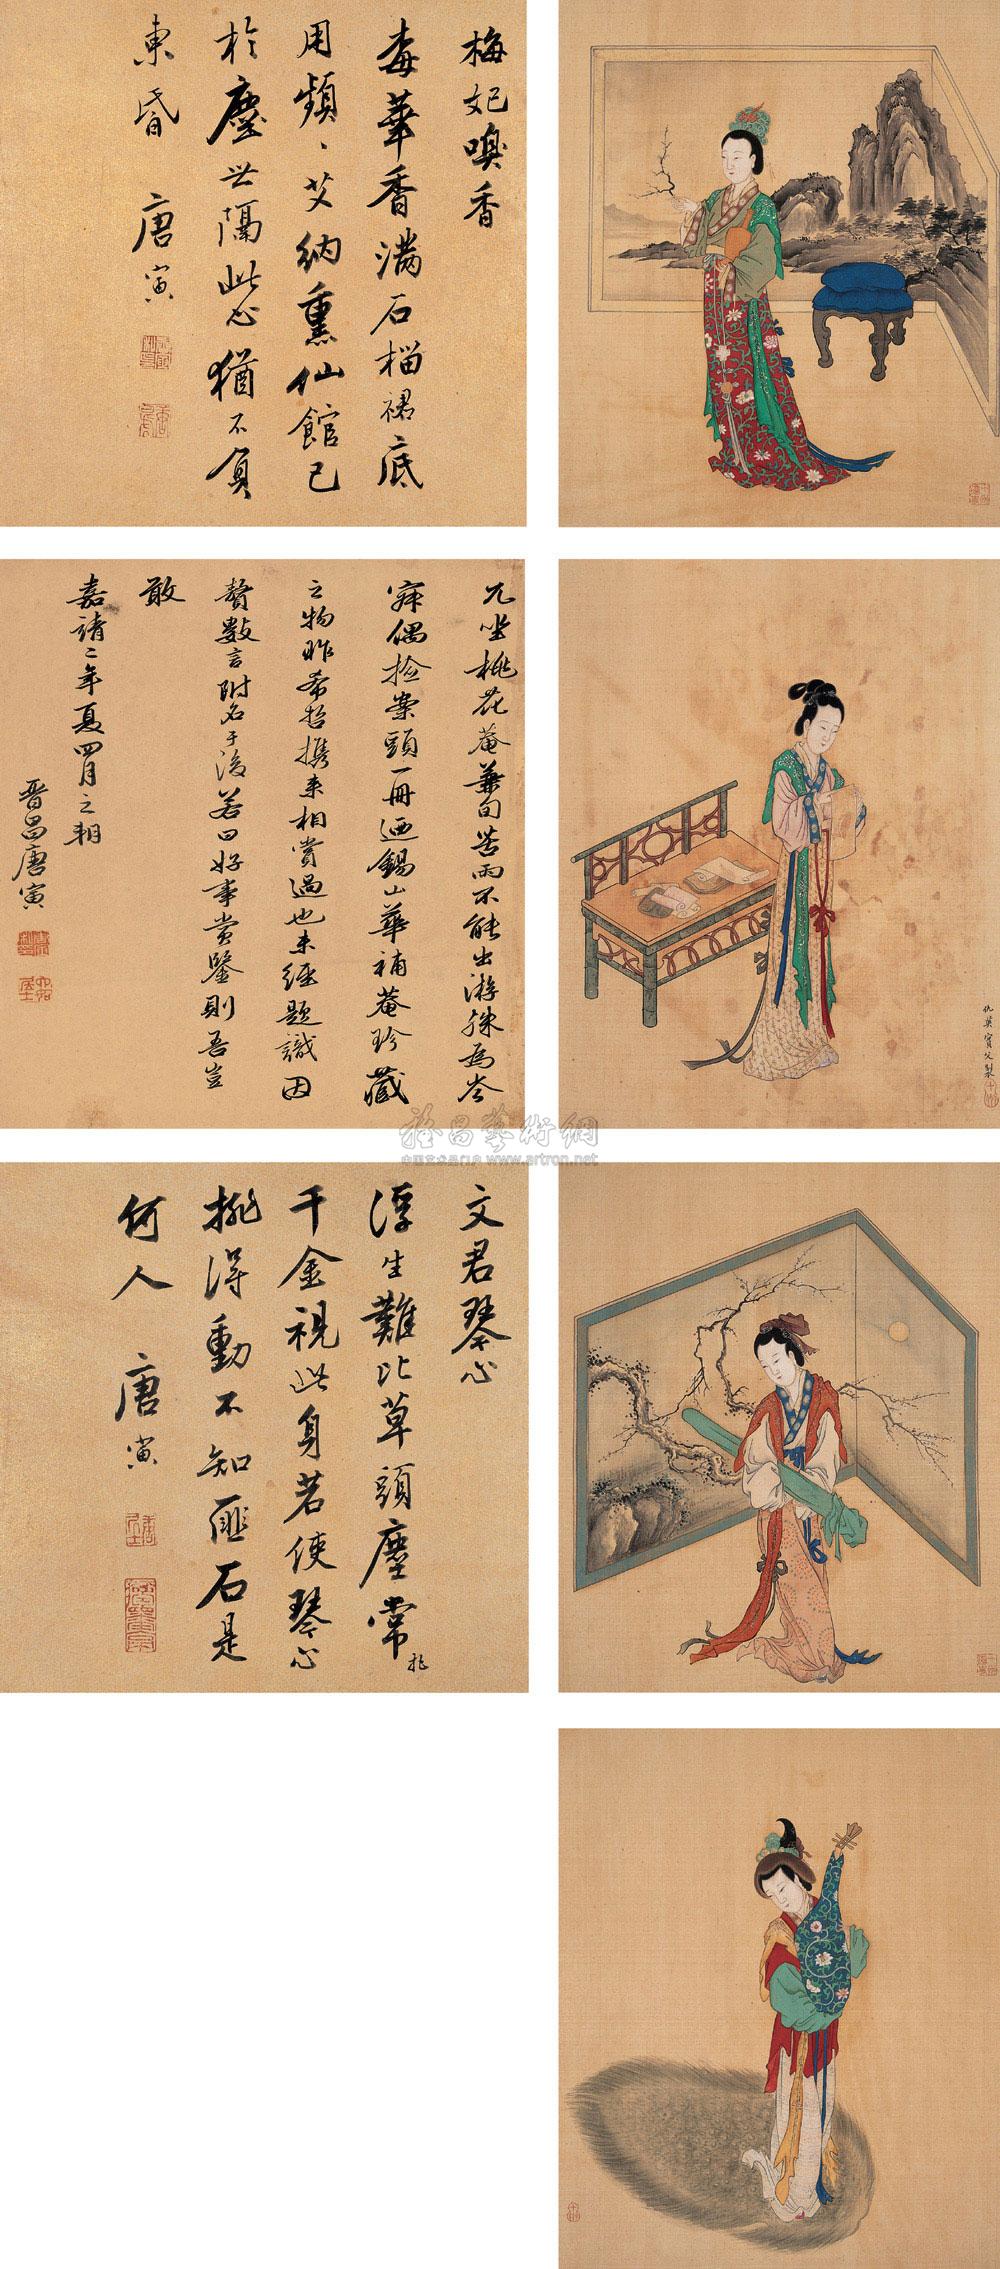 梅妃嗅香
梅華香滿石榴裙底
用頻、艾納熏仙館已
於塵世隔此心猶不負
東昏
唐寅
兀坐桃花菴兼旬苦雨不能出游殊為岑
寂偶撿案頭一冊迺錫山華補菴珍藏
之物昨希哲攜來相賞過也未經題識因
贅數言附名于後若曰好事賞鑒則吾豈
敢
嘉靖二年夏四月之朔
晉昌唐寅
仇英實父製
文君琴心
浮生難比草頭塵常
千金視此身若使琴心
挑得動不知匪石是
何人
唐寅
中国艺术品门户 www.artron.net